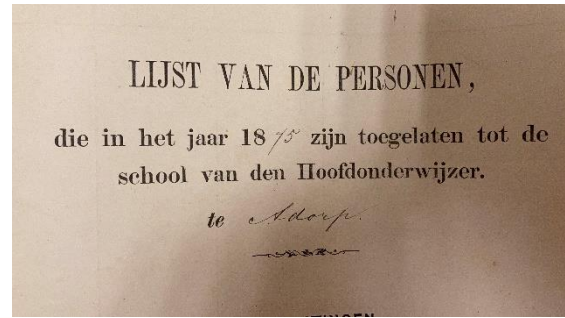 LIJST VAN DE PERSONEN,
die in het jaar 1875 zijn toegelaten tot de
school van den Hoofdonderwijzer.
te Adorp.